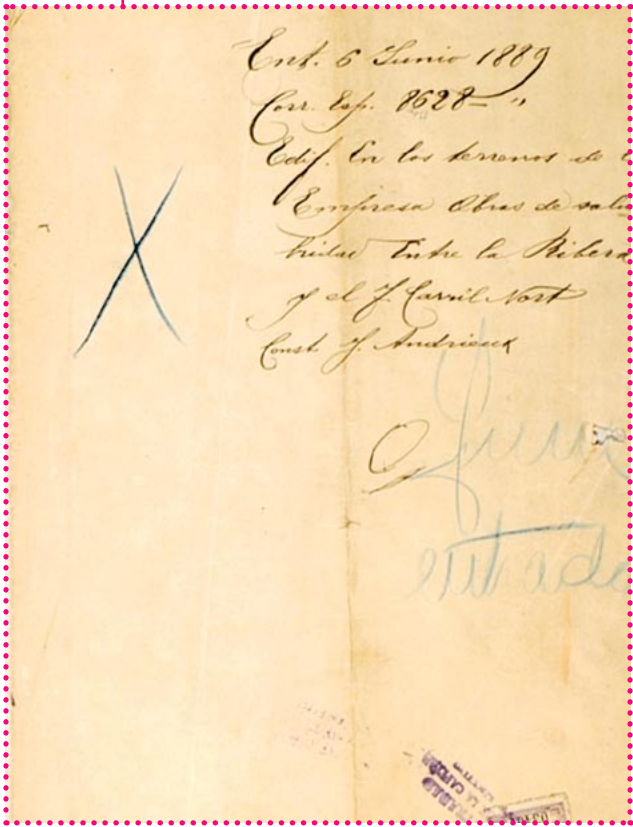 Ent. 6 Junio 1889
Corr. Esp. 8628 = "
Edif. En los terrenos de l
Empresa Obras de salu
bridad Entre la Ribera
y el F. Carril Nort
Const. J. Andrieux
Junio
entrada